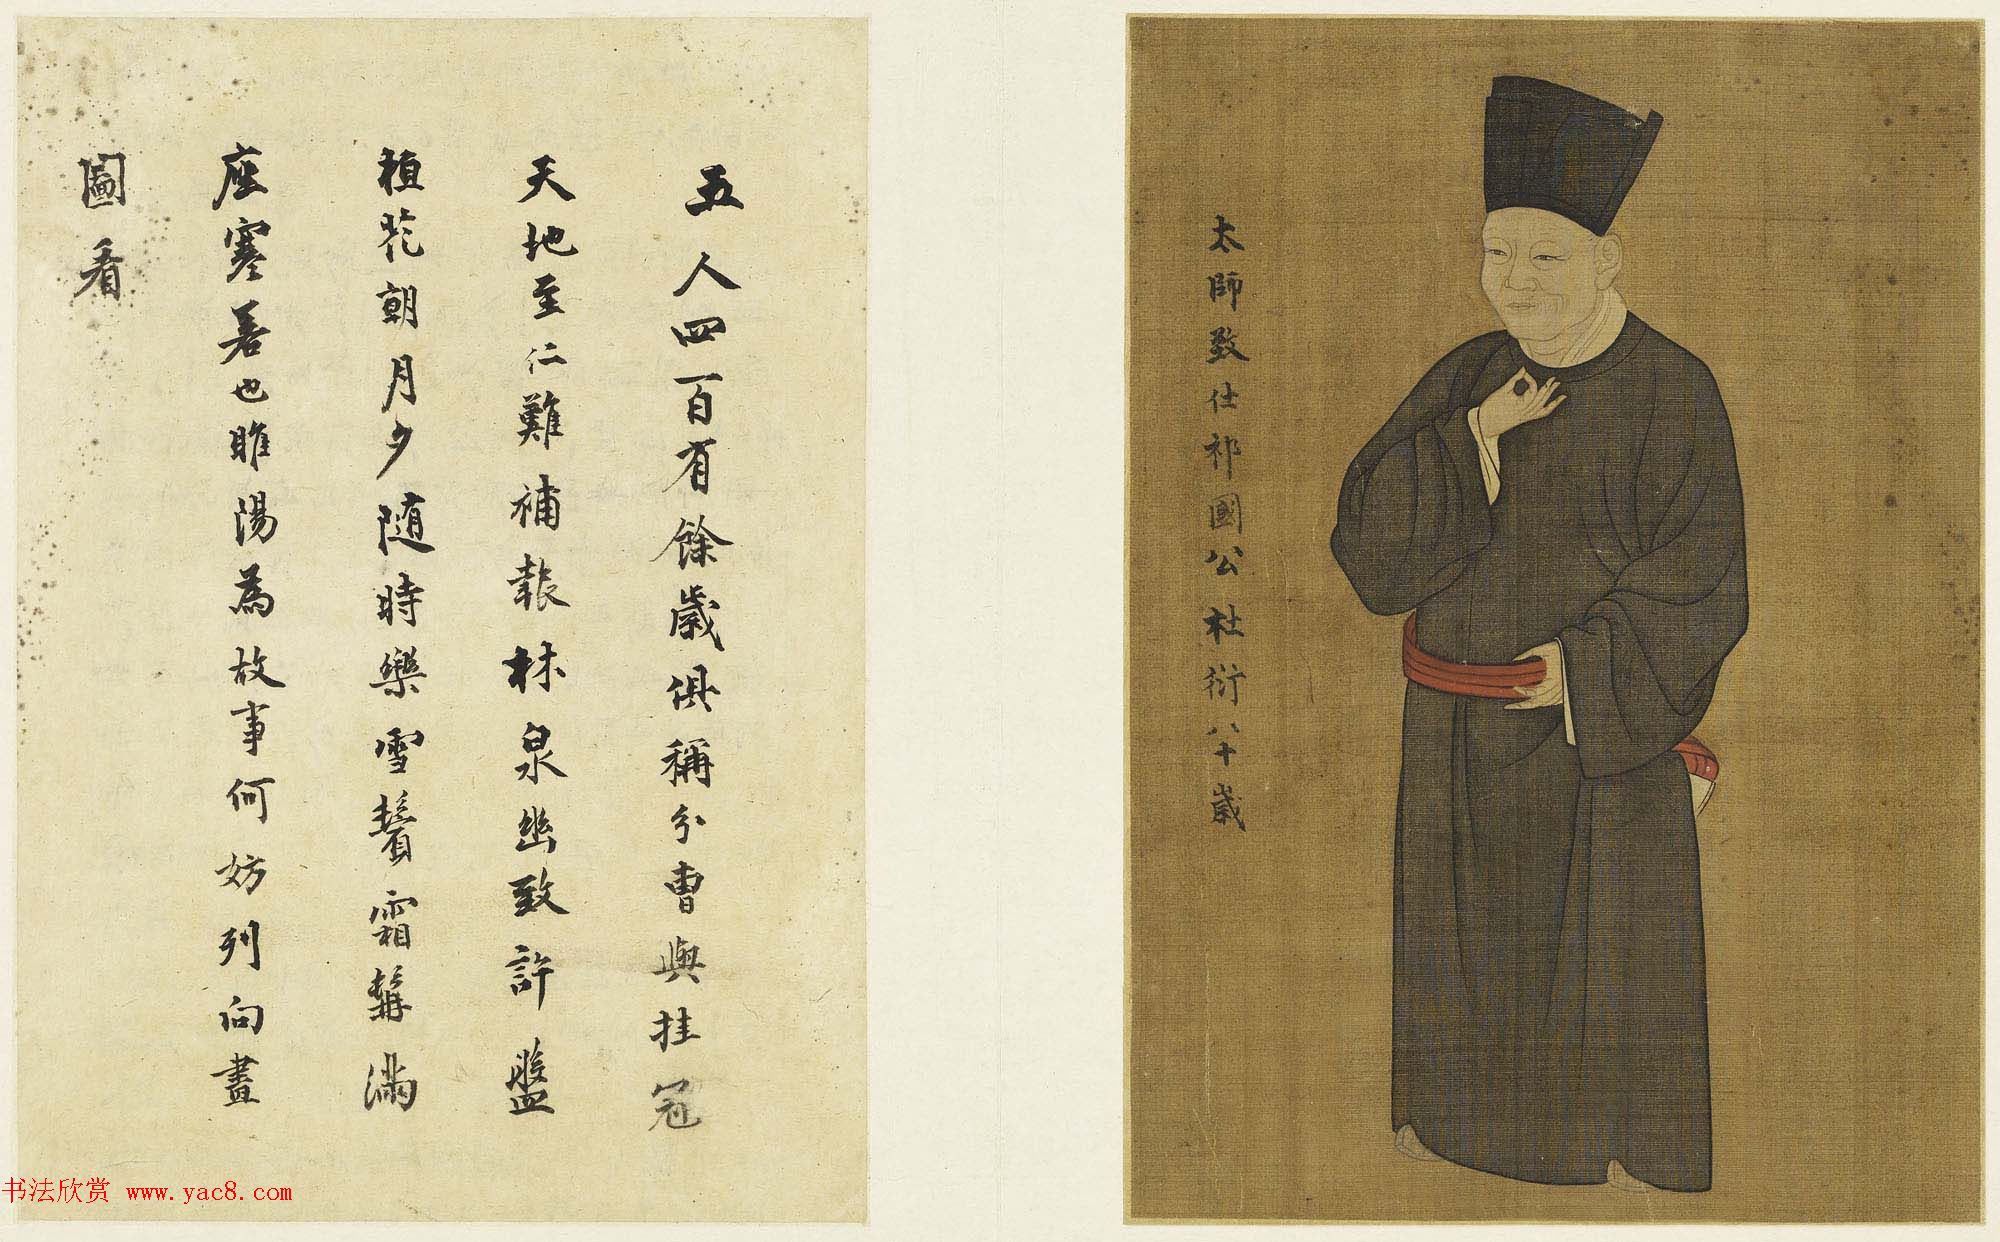 太師致仕祁國公杜衍八十歲
五人四百有餘歲俱稱分曹與挂冠
天地至仁難補報林泉幽致許盤
桓花朝月夕随時樂雪鬢霜髯滿
座寒若也睢陽為故事何妨列向畫
圖看
书法欣赏 www.yac8.com